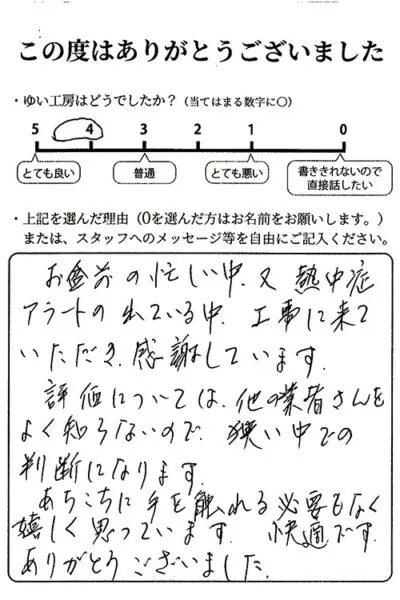 この度はありがとうございました
・ゆい工房はどうでしたか？（当てはまる数字に○）
5 4 3 2 1 0
とても良い 普通 とても悪い 書ききれないので
直接話したい
・上記を選んだ理由（0を選んだ方はお名前をお願いします。）
または、スタッフへのメッセージ等を自由にご記入ください。
お盆前の忙しい中、又 熱中症
アラートの出ている中、工事に来て
いただき、感謝しています。
評価については、他の業者さんを
よく知らないので、狭い中での
判断になります。
あちこちに手を触れる必要もなく
嬉しく思っています。快適です。
ありがとうございました。